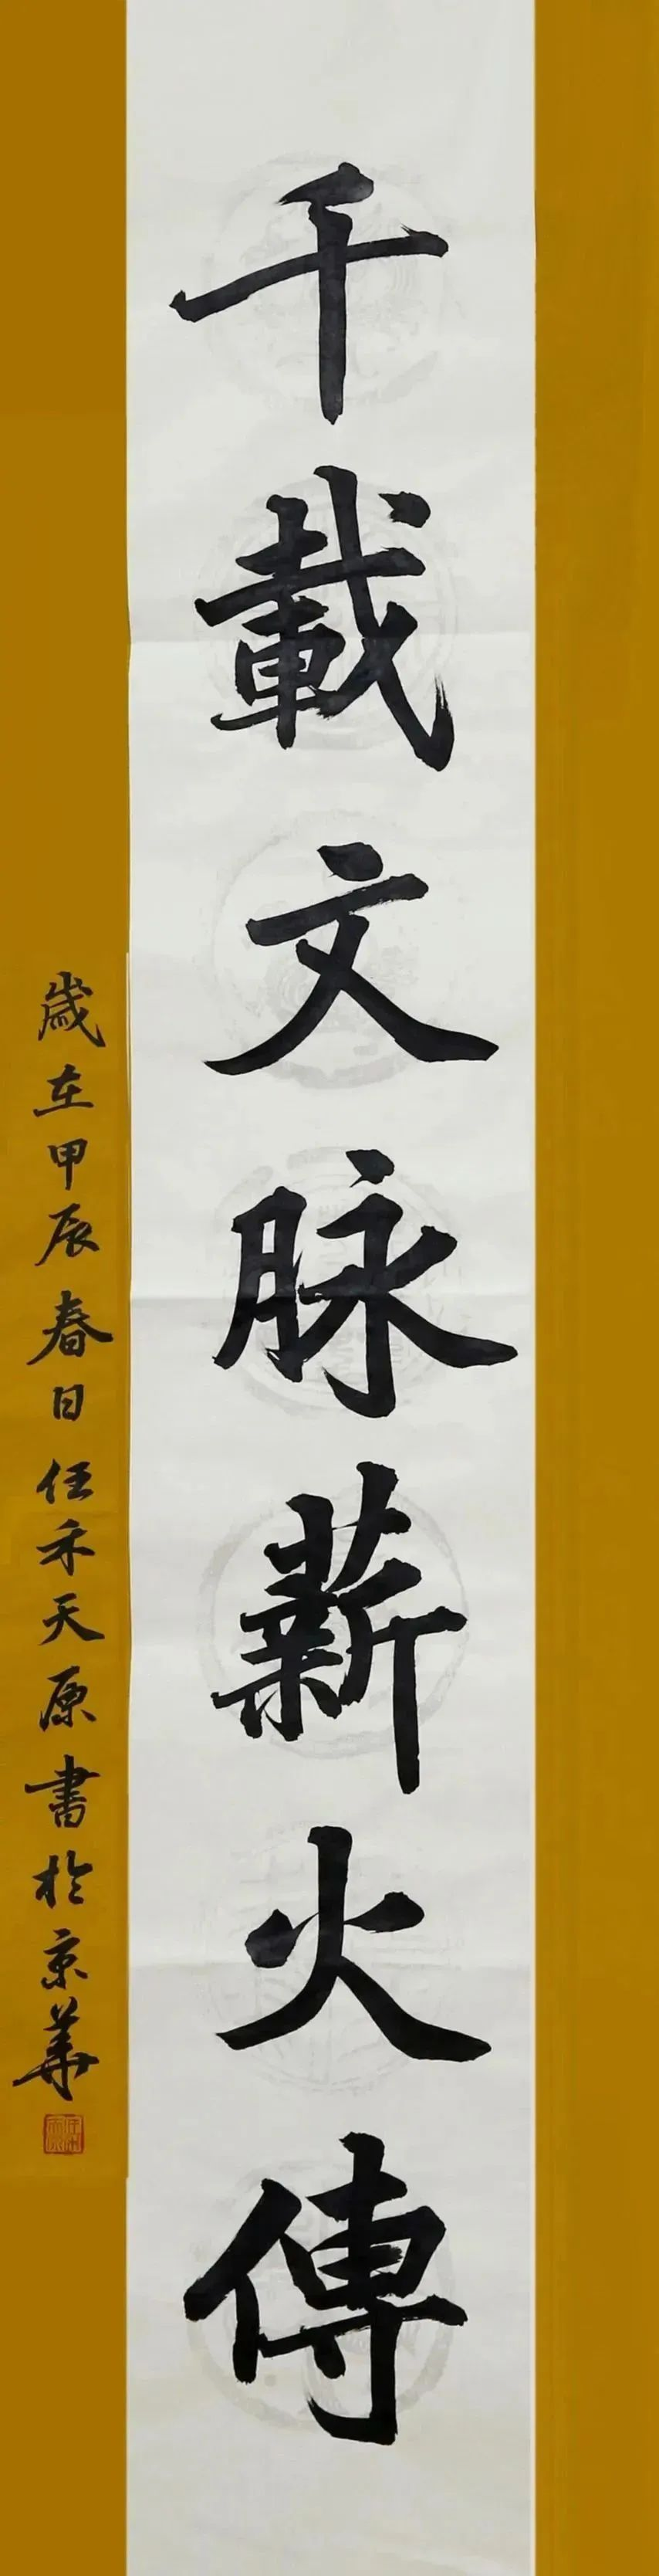 千載文脉薪火傳
歲在甲辰春日任禾天原書於京華